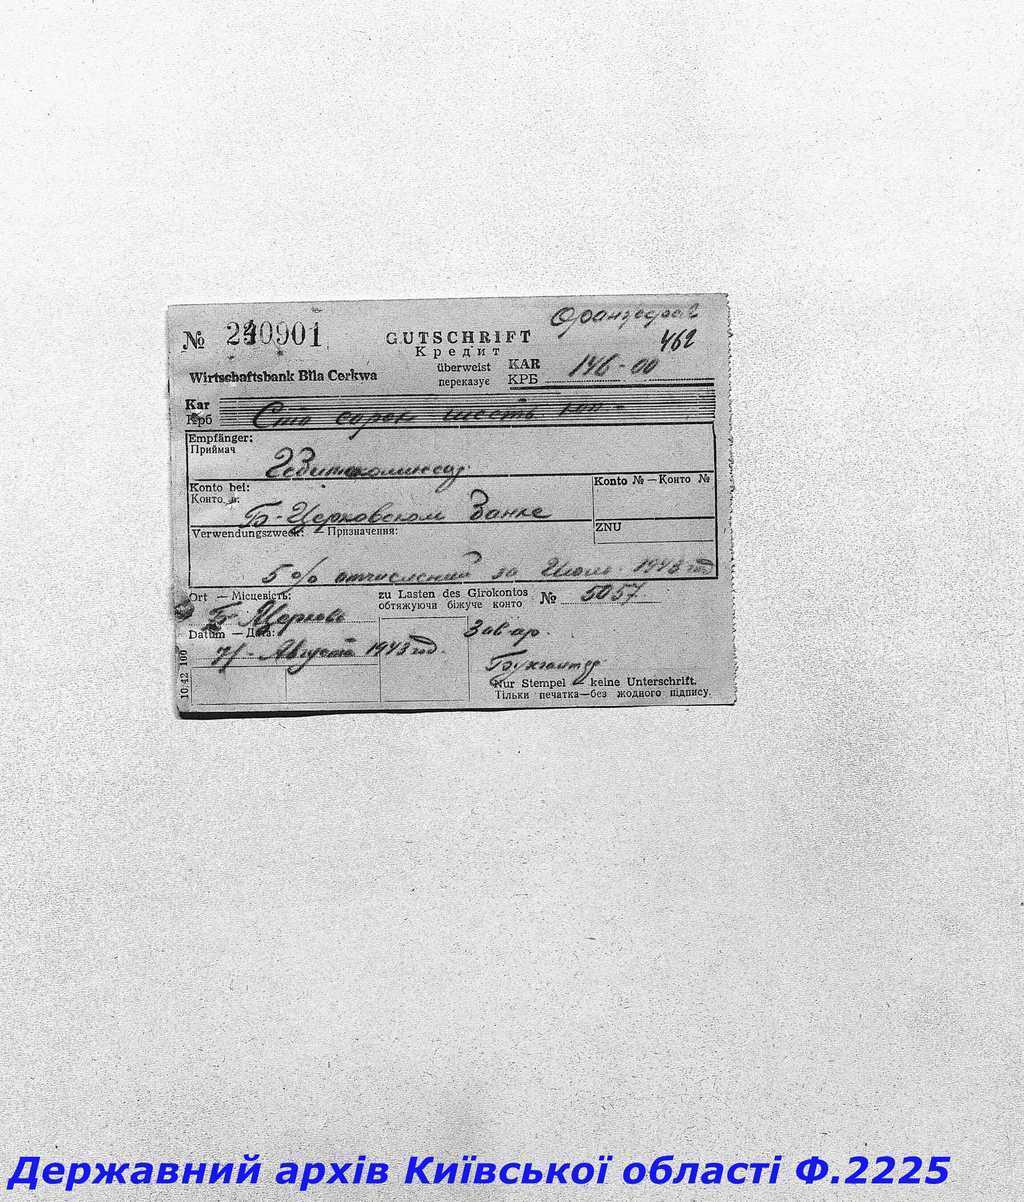 № 240901
GUTSCHRIFT
Кредит
462
Wirtschaftsbank Bila Cerkwa
überweist KAR 146-00
переказує КРБ
Kar
Крб Сто сорок шесть коп -
Empfänger:
Приймач
Гебитскомиссар
Konto bei:
Конто в:
Konto № — Конто №
Б-Церковском Банке
ZNU
Verwendungszweck: — Призначення:
5% отчислений за Июль 1943 год
Ort — Місцевість:
zu Lasten des Girokontos
обтяжуючи біжуче конто № 5057
Б-Церковь
Datum — Дата:
Зав ар.
7/-Августа 1943 год.
Бухгалтер
10.42 100
Nur Stempel — keine Unterschrift.
Тільки печатка—без жодного підпису.
Державний архів Київської області Ф.2225